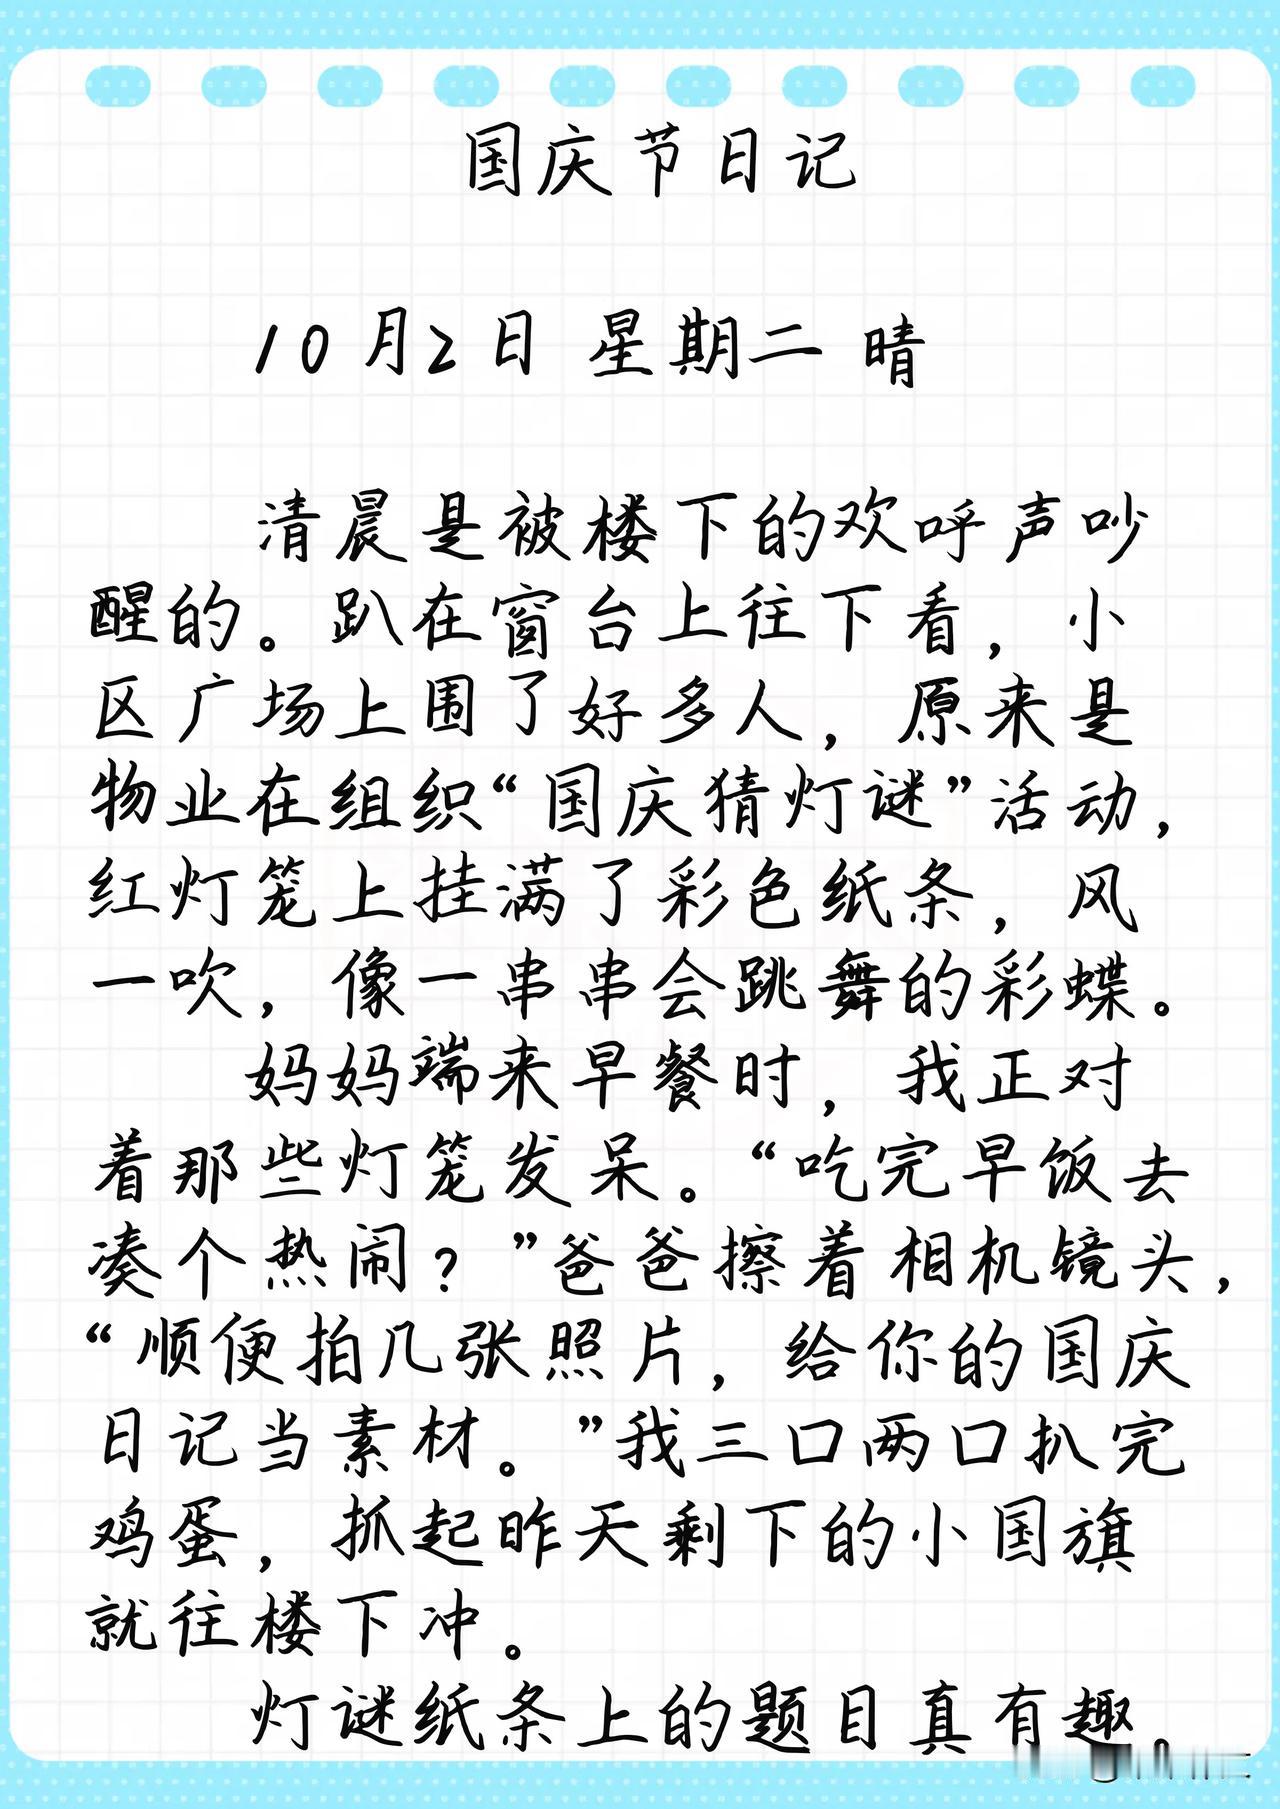 国庆节日记
10月2日 星期二 晴
清晨是被楼下的欢呼声吵
醒的。趴在窗台上往下看，小
区广场上围了好多人，原来是
物业在组织“国庆猜灯谜”活动，
红灯笼上挂满了彩色纸条，风
一吹，像一串串会跳舞的彩蝶。
妈妈端来早餐时，我正对
着那些灯笼发呆。“吃完早饭去
凑个热闹？”爸爸擦着相机镜头，
“顺便拍几张照片，给你的国庆
日记当素材。”我三口两口扒完
鸡蛋，抓起昨天剩下的小国旗
就往楼下冲。
灯谜纸条上的题目真有趣。